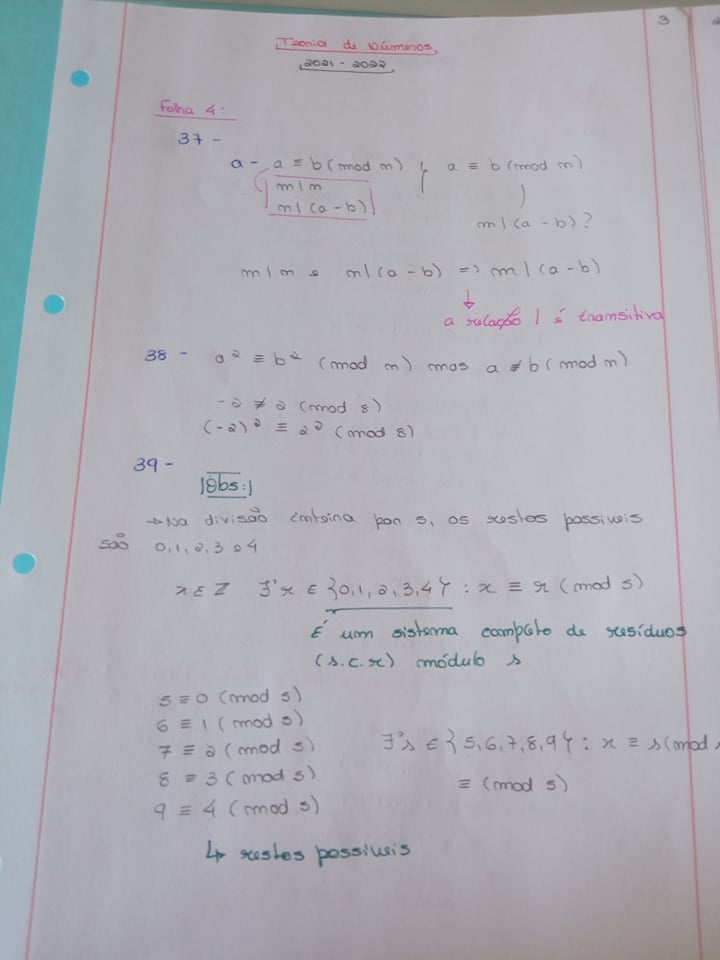 3
Teoria de Números
2021 - 2022
Folha 4:
37 -
a - a ≡ b (mod n) , a ≡ b (mod m)
m | n
n | (a - b)
m | (a - b) ?
m | n e n | (a - b) => m | (a - b)
↓
a relação | é transitiva
38 - a² ≡ b² (mod n) mas a ≢ b (mod n)
-2 ≢ 2 (mod 8)
(-2)² ≡ 2² (mod 8)
39 -
|Obs:|
→ Na divisão inteira por 5, os restos possíveis
são 0, 1, 2, 3 e 4
x ∈ Z ∃¹r ∈ {0,1,2,3,4} : x ≡ r (mod 5)
É um sistema completo de resíduos
(s.c.r) módulo 5
5 ≡ 0 (mod 5)
6 ≡ 1 (mod 5)
7 ≡ 2 (mod 5)
8 ≡ 3 (mod 5)
9 ≡ 4 (mod 5)
∃¹s ∈ {5,6,7,8,9} : x ≡ s (mod
≡ (mod 5)
↳ restos possíveis